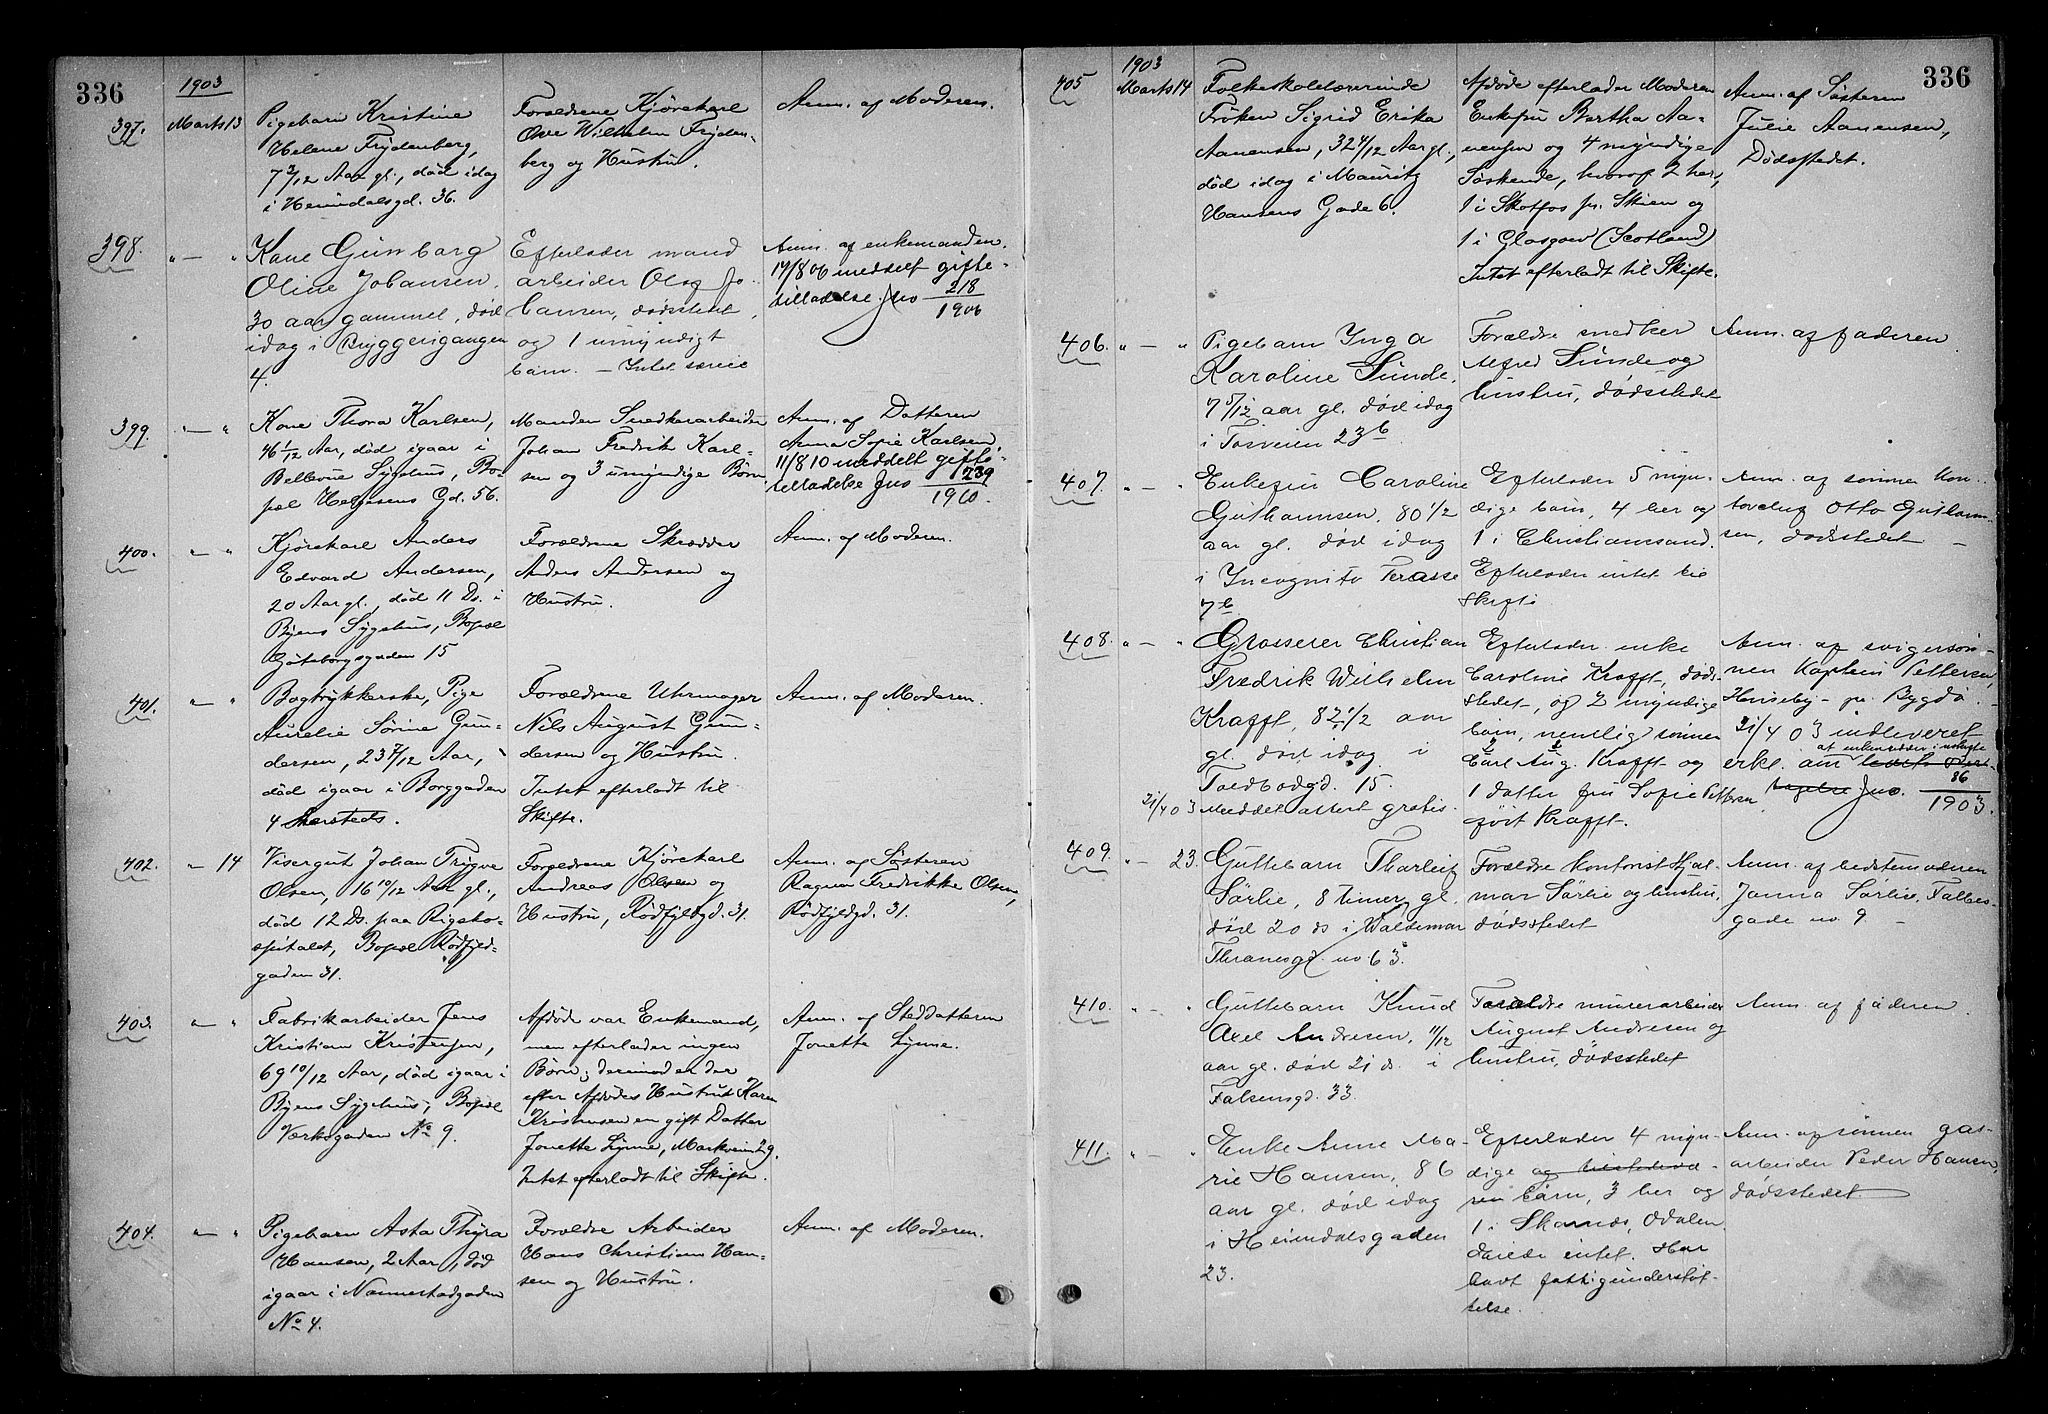 336
1903
397.
Marts 13
Pigebarn Kristine
Helene Frydenberg,
7 2/12 Aar gl., død idag
i Heimdalsgd. 36.
Forældrene Kjørekarl
Ove Wilhelm Fryden-
berg og Hustru.
Anm. af Moderen.
398.
" — "
Kone Gunborg
Oline Johansen,
30 aar gammel, død
idag i Bryggerigangen
4.
Efterlader mand
arbeider Olaf Jo-
hansen, dødsstedet,
og 1 umyndigt
barn. — Intet særeie
Anm. af enkemanden.
14/8 06 meddelt gifte-
tilladelse Jno 218
1906
399.
" — "
Kone Thora Karlsen,
46 1/12 Aar, død igaar i
Bellevue Sygehus, Bo-
pæl Helgesens Gd. 56.
Manden Snedkerarbeider
Johan Fredrik Karl-
sen og 3 umyndige Børn
Anm. af Datteren
Anna Sofie Karlsen.
11/8 10 meddelt gifte-
tilladelse Jno 239
1910.
400.
" — "
Kjørekarl Anders
Edvard Andersen,
20 Aar gl., død 11 Ds. i
Byens Sygehus, Bopæl
Göteborgsgaden 15
Forældrene Skrædder
Anders Andersen og
Hustru.
Anm. af Moderen.
401.
" — "
Bogtrykkerske, Pige
Aurelie Sørine Gun-
dersen, 23 7/12 Aar,
død igaar i Borggaden
4
Forældrene Uhrmager
Nils August Gun-
dersen og Hustru.
Intet efterladt til
Skifte.
Anm. af Moderen.
402.
" — 14
Visergut Johan Trygve
Olsen, 16 10/12 Aar gl.,
død 12 Ds. paa Rigsho-
spitalet, Bopæl Rødfyld-
gaden 31.
Forældrene Kjørekarl
Andreas Olsen og
Hustru, Rødfyldgd. 31.
Anm. af Søsteren
Ragna Fredrikke Olsen,
Rødfyldgd. 31.
403.
" — "
Fabrikarbeider Jens
Kristian Kristensen,
69 10/12 Aar, død igaar i
Byens Sygehus, Bopæl
Værksgaden No 9.
Afdøde var Enkemand,
men efterlader ingen
Børn; derimod er der
efter Afdødes Hustru Karen
Kristensen en gift Datter
Jonette Lynne, Markveien 29.
Intet efterladt til Skifte.
Anm. af Steddatteren
Jonette Lynne.
404.
" — "
Pigebarn Asta Thyra
Hansen, 2 Aar, død
igaar i Nannestadgaden
No 4.
Forældre Arbeider
Hans Christian Han-
sen og Hustru.
Anm. af Moderen.
336
1903
405
Marts 14
Folkeskolelærerinde
Frøken Sigrid Erika
Aanensen, 32 4/12 Aar gl.,
død idag i Mauritz
Hansens Gade 6.
Afdøde efterlader Moderen
Enkefru Bertha Aa-
nensen og 4 myndige
Søskende, hvoraf 2 her,
1 i Skotfos pr. Skien og
1 i Glasgow (Scotland)
Intet efterladt til Skifte.
Anm. af Søsteren
Julie Aanensen,
Dødsstedet.
406.
" — "
Pigebarn Inga
Karoline Sunde,
7 5/12 aar gl. død idag
i Tosveien 23 b.
Forældre snedker
Alfred Sunde og
hustru, dødsstedet
Anm. af faderen
407.
" — "
Enkefru Caroline
Guthormsen, 80 1/2
aar gl. død idag
i Incognito Terasse
7 b.
Efterlader 5 myn-
dige barn, 4 her og
1 i Christiansand.
Efterlader intet til
Skifte
Anm. af sønnen kon-
torchef Otto Guthorm-
sen, dødsstedet —
408.
" — "
Grosserer Christian
Fredrik Wilhelm
Krafft, 82 1/2 aar
gl. død idag i
Toldbodgd. 15.
21/4 03 meddelt attest gratis.
Efterlader enke
Caroline Krafft, død-
stedet, og 2 myndige
barn, nemlig sønnen
Carl Aug. Krafft og
1 datter fru Sofie Pettersen
født Krafft.
Anm. af svigersøn-
nen Kaptein Pettersen,
Huseby pr. Bygdø.
21/4 03 indleveret
at enken sidder i uskifte
erkl. om
Jno. 86
1903.
409.
" — 23.
Guttebarn Tharleif
Sørlie, 8 timer gl.
død 20 ds i Waldemar
Thranesgd. no 63.
Forældre kontorist Hjal-
mar Sørlie og hustru,
dødsstedet
Anm. af bedstemoderen
Janna Sørlie, Falbes-
gade no 9 —
410.
" — "
Guttebarn Knud
Axel Andresen, 11/12
aar gl. død 21 ds. i
Falsensgd. 33.
Forældre murerarbeider
August Andresen og
hustru, dødsstedet
Anm. af faderen.
411.
" — "
Enke Anne Ma-
rie Hansen, 86
aar gl. død idag
i Heimdalsgaden
23.
Efterlader 4 myn-
dige
barn, 3 her og
1 i Skarnæs, Odalen
Eiede intet. Har
havt fattigunderstøt-
telse.
Anm. af sønnen gas-
arbeider Peder Hansen,
dødsstedet